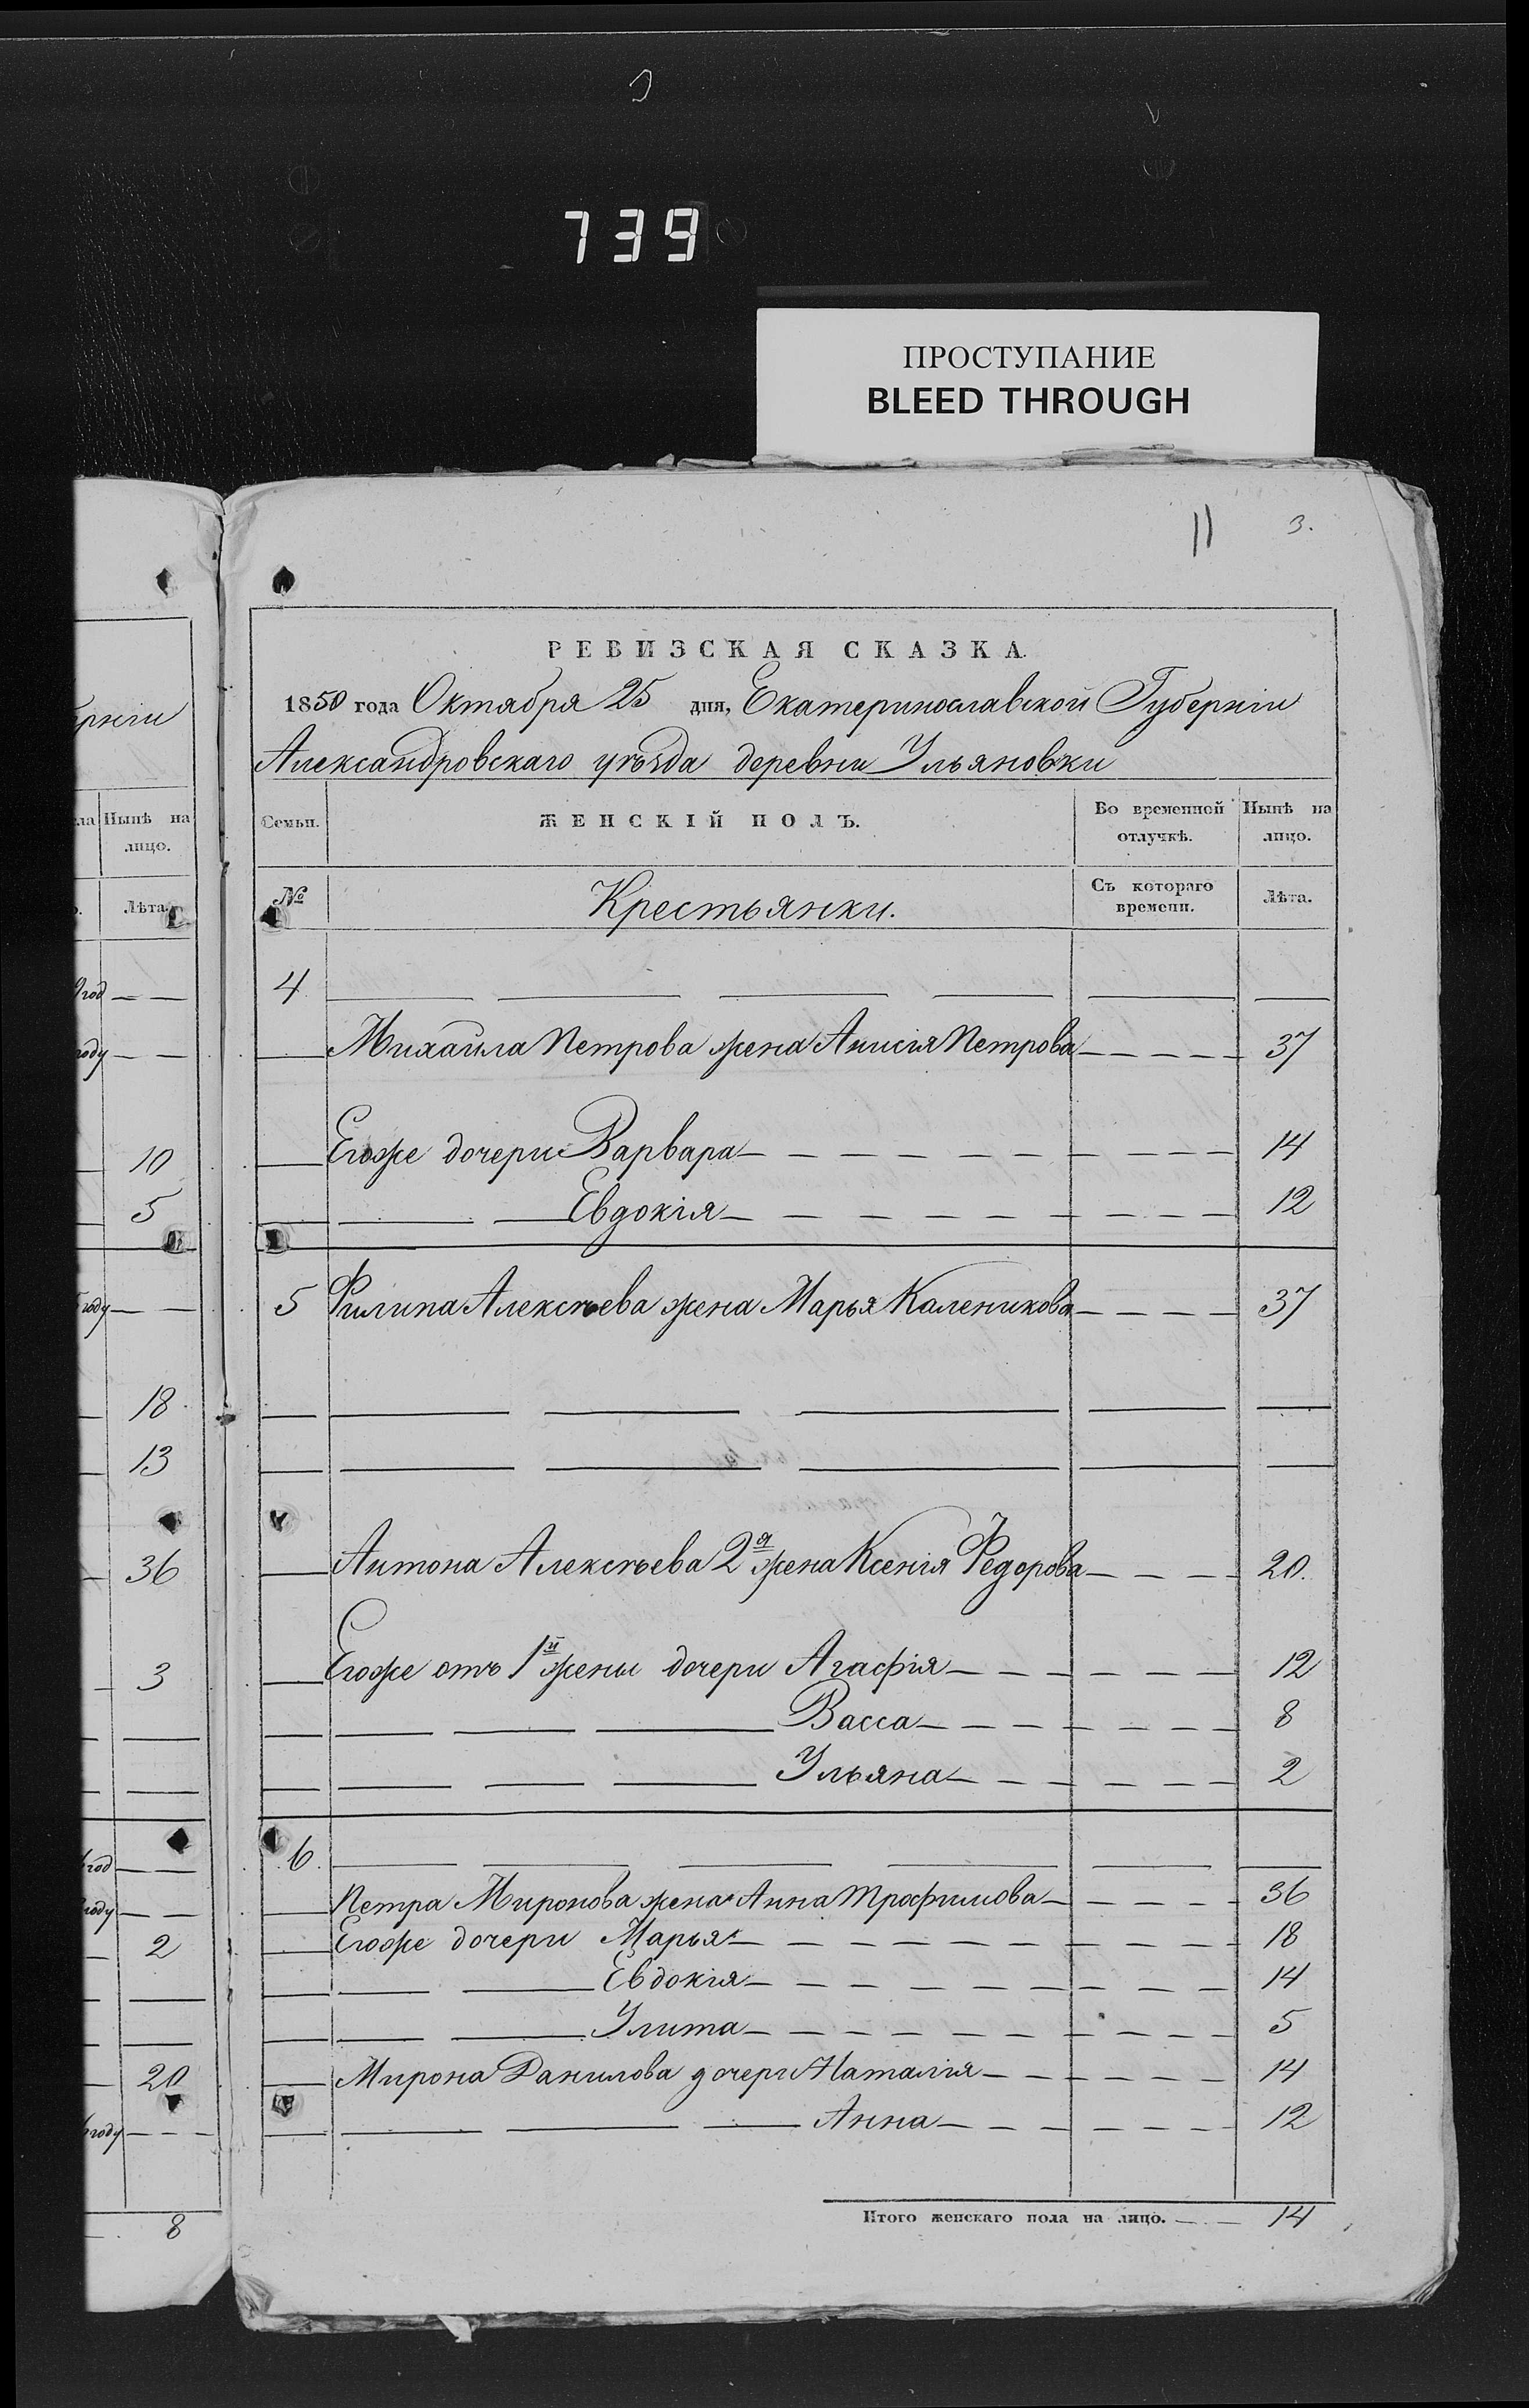 739
ПРОСТУПАНИЕ
BLEED THROUGH
11 3.
РЕВИЗСКАЯ СКАЗКА.
1850 года Октября 25 дня, Екатеринославской Губернiи
Александровскаго уѣзда деревни Ульяновки
Семьи. ЖЕНСКІЙ ПОЛЪ. Во временной отлучкѣ. Нынѣ на лицо.
№ Крестьянки. Съ котораго времени. Лѣта.
4
Михайла Петрова жена Анисiя Петрова 37
Егоже дочери Варвара 14
Евдокiя 12
5 Филипа Алексѣева жена Марья Каленикова 37
Антона Алексѣева 2я жена Ксенiя Федорова 20.
Егоже отъ 1й жены дочери Агафiя 12
Васса 8
Ульяна 2
6.
Петра Миронова жена Анна Трофимова 36
Егоже дочери Марья 18
Евдокiя 14
Улита 5
Мирона Данилова дочери Наталiя 14
Анна 12
Итого женскаго пола на лицо. 14
Нынѣ на
лицо.
Лѣта.
год
году
10
5
году
18
13
36
3
год
году
2
20
году
8